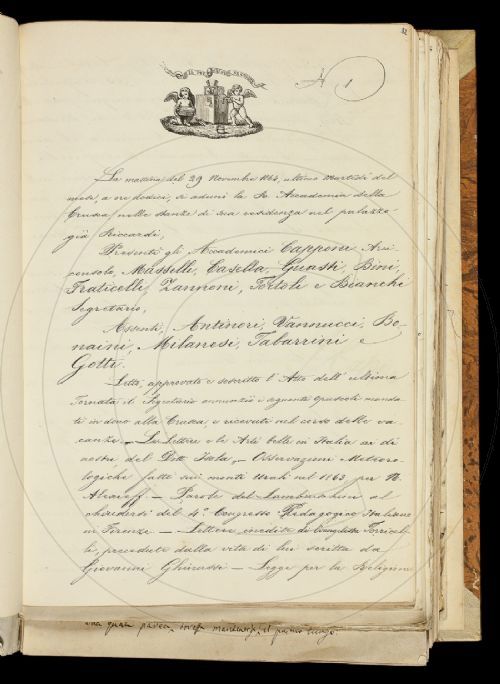 32
A 1
La mattina del 29 Novembre 1864, ultimo Martedì del
mese, a ore dodici, si adunò la R. Accademia della
Crusca nelle stanze di sua residenza nel palazzo
già Riccardi,
Presenti gli Accademici Capponi Arci=
consolo, Masselli, Casella, Guasti, Bini,
Fraticelli, Zannoni, Tortoli e Bianchi
Segretario,
Assenti, Antinori, Vannucci, Bo=
naini, Milanesi, Tabarrini e
Gotti.
Letto, approvato e soscritto l'Atto dell'ultima
Tornata il Segretario annunziò i seguenti opuscoli manda=
ti in dono alla Crusca, e ricevuti nel corso delle va=
canze. — Le Lettere e le Arti belle in Italia ai dì
nostri del Dott. — Osservazioni Meteoro=
logiche fatte sui monti Urali nel 1863 per
— Parole del Lambruschini al
chiudersi del 4.° Congresso Pedagogico Italiano
in Firenze — Lettere inedite di Evangelista Torricel=
li, precedute dalla vita di lui scritta da
Giovanni Ghinassi — Legge per la Religione
una quasi